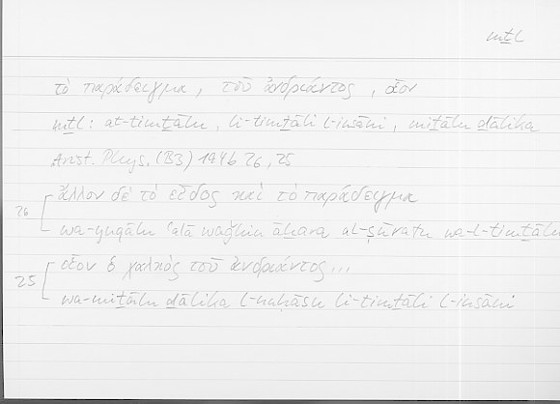 mṯl
τὸ παράδειγμα, τοῦ ἀνδριάντος, οἷον
mṯl: at-timṯālu, li-timṯāli l-insāni, miṯālu ḏālika
Arist. Phys. (B3) 194b 26, 25
26 ἄλλον δὲ τὸ εἶδος καὶ τὸ παράδειγμα
wa-yuqālu ʿalā waǧhin āḫara aṣ-ṣūratu wa-t-timṯālu
25 οἷον ὁ χαλκὸς τοῦ ἀνδριάντος...
wa-miṯālu ḏālika n-nuḥāsu li-timṯāli l-insāni